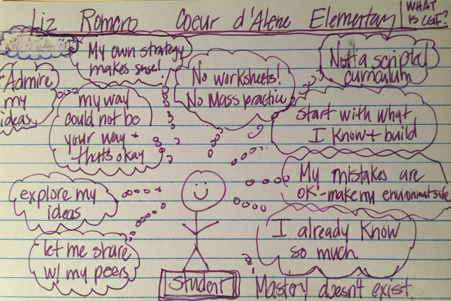 Liz Romero Coeur d'Alene Elementary
WHAT
IS CGI?
My own strategy
makes sense!
No worksheets!
No Mass practice
Not a scripted
curriculum
Admire
my
ideas
my way
could not be
your way +
that's okay
start with what
I know + build
My mistakes are
OK - make my environment safe
explore my
ideas
I already know
so much
let me share
w/ my peers
student
Mastery doesn't exist.